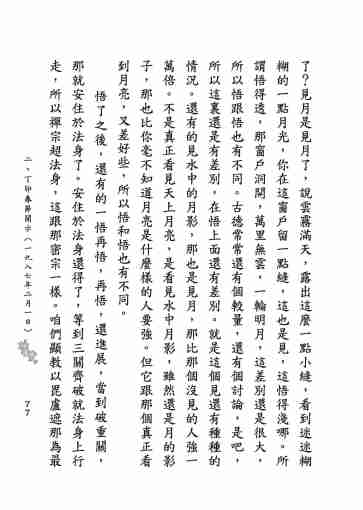 了？見月是見月了，說雲霧滿天，露出這麼一點小縫，看到迷迷糊
糊的一點月光，你在這窗戶留一點縫，這也是見，這悟得淺哪。所
謂悟得透，那窗戶洞開，萬里無雲，一輪明月，這差別還是很大，
所以悟跟悟也有不同。古德常常還有個較量，還有個討論，是吧，
所以這裏還是有差別，在悟上面還有差別。就是這個見還有種種的
情況。還有的見水中的月影，那也是見月，那比那個沒見的人強一
萬倍。不是真正看見天上月亮，是看見水中月影，雖然還是月的影
子，那也比你毫不知道月亮是什麼樣的人要強。但它跟那個真正看
到月亮，又差好些，所以悟和悟也有不同。
悟了之後，還有的一悟再悟，再悟，還進展，當到破重關，
那就安住於法身了。安住於法身還得了，等到三關齊破就法身上行
走，所以禪宗超法身，這跟那密宗一樣。咱們顯教以毘盧遮那為最
二、丁卯春節開示（一九八七年二月一日）
77